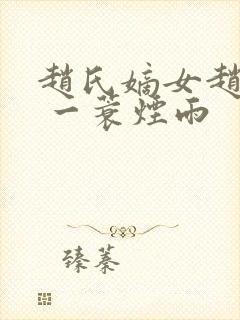 趙氏嫡女趙
一蓑煙雨
臻蓁